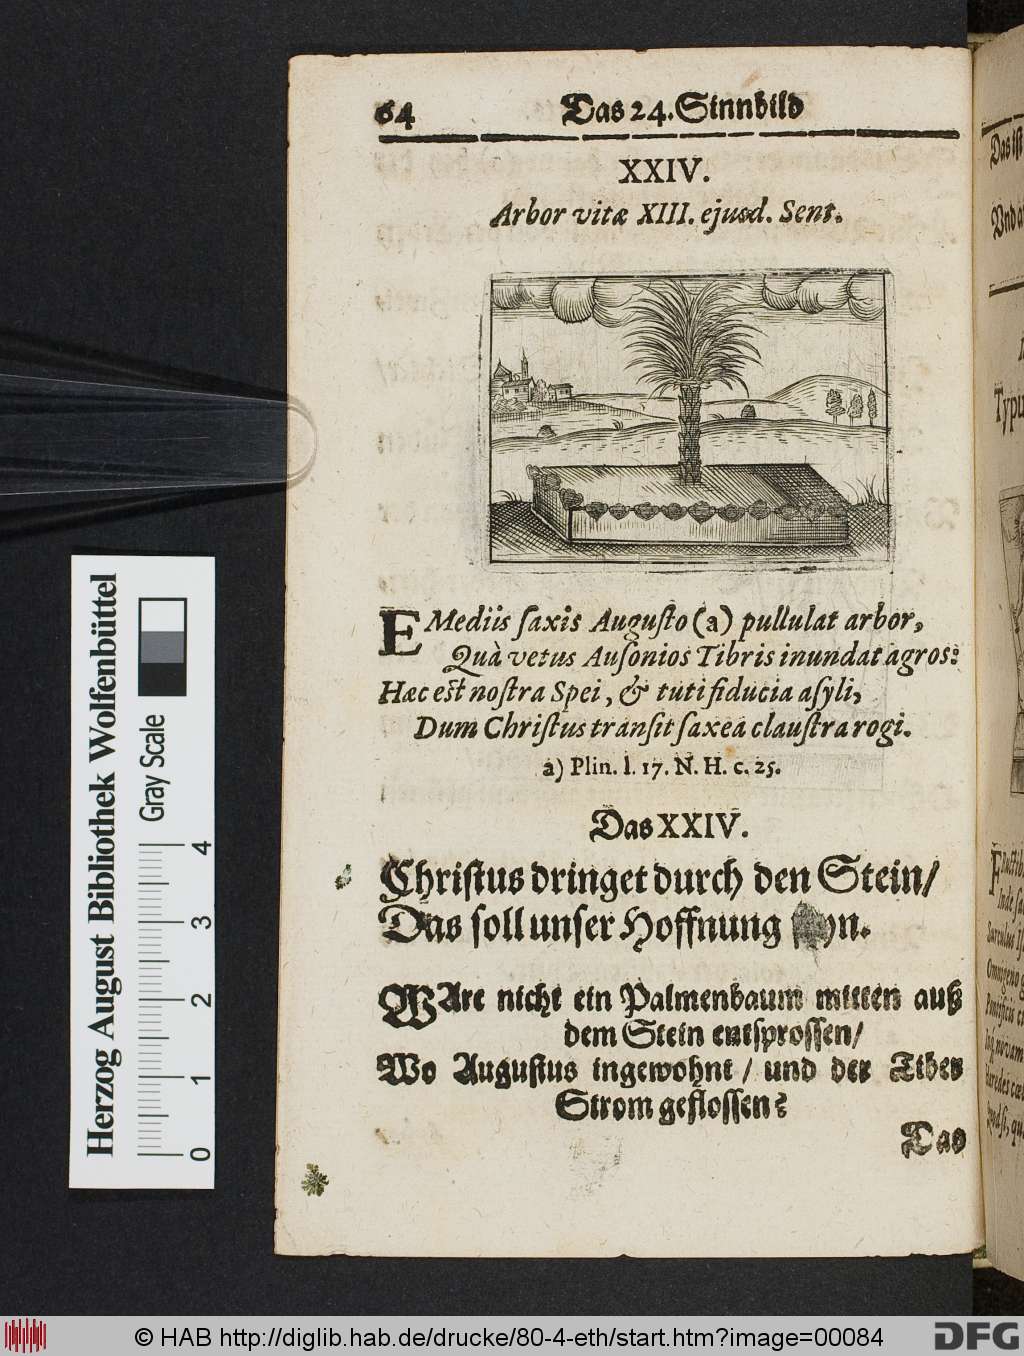 64 Das 24. Sinnbild
XXIV.
Arbor vitæ XIII. ejusd. Sent.
E Mediis ſaxis Auguſto (a) pullulat arbor,
Quà vetus Auſonios Tibris inundat agros:
Hæc eſt noſtra Spei, & tuti fiducia aſyli,
Dum Chriſtus tranſit ſaxea clauſtra rogi.
a) Plin. l. 17. N. H. c. 25.
Das XXIV.
Chriſtus dringet durch den Stein/
Das ſoll unſer Hoffnung
WAre nicht ein Palmenbaum mitten auß
dem Stein entſproſſen/
Wo Auguſtus ingewohnt / und der Tiber
Strom gefloſſen?
Das
Herzog August Bibliothek Wolfenbüttel
Gray Scale
0 1 2 3 4
Das iſt
Typu
© HAB http://diglib.hab.de/drucke/80-4-eth/start.htm?image=00084
DFG